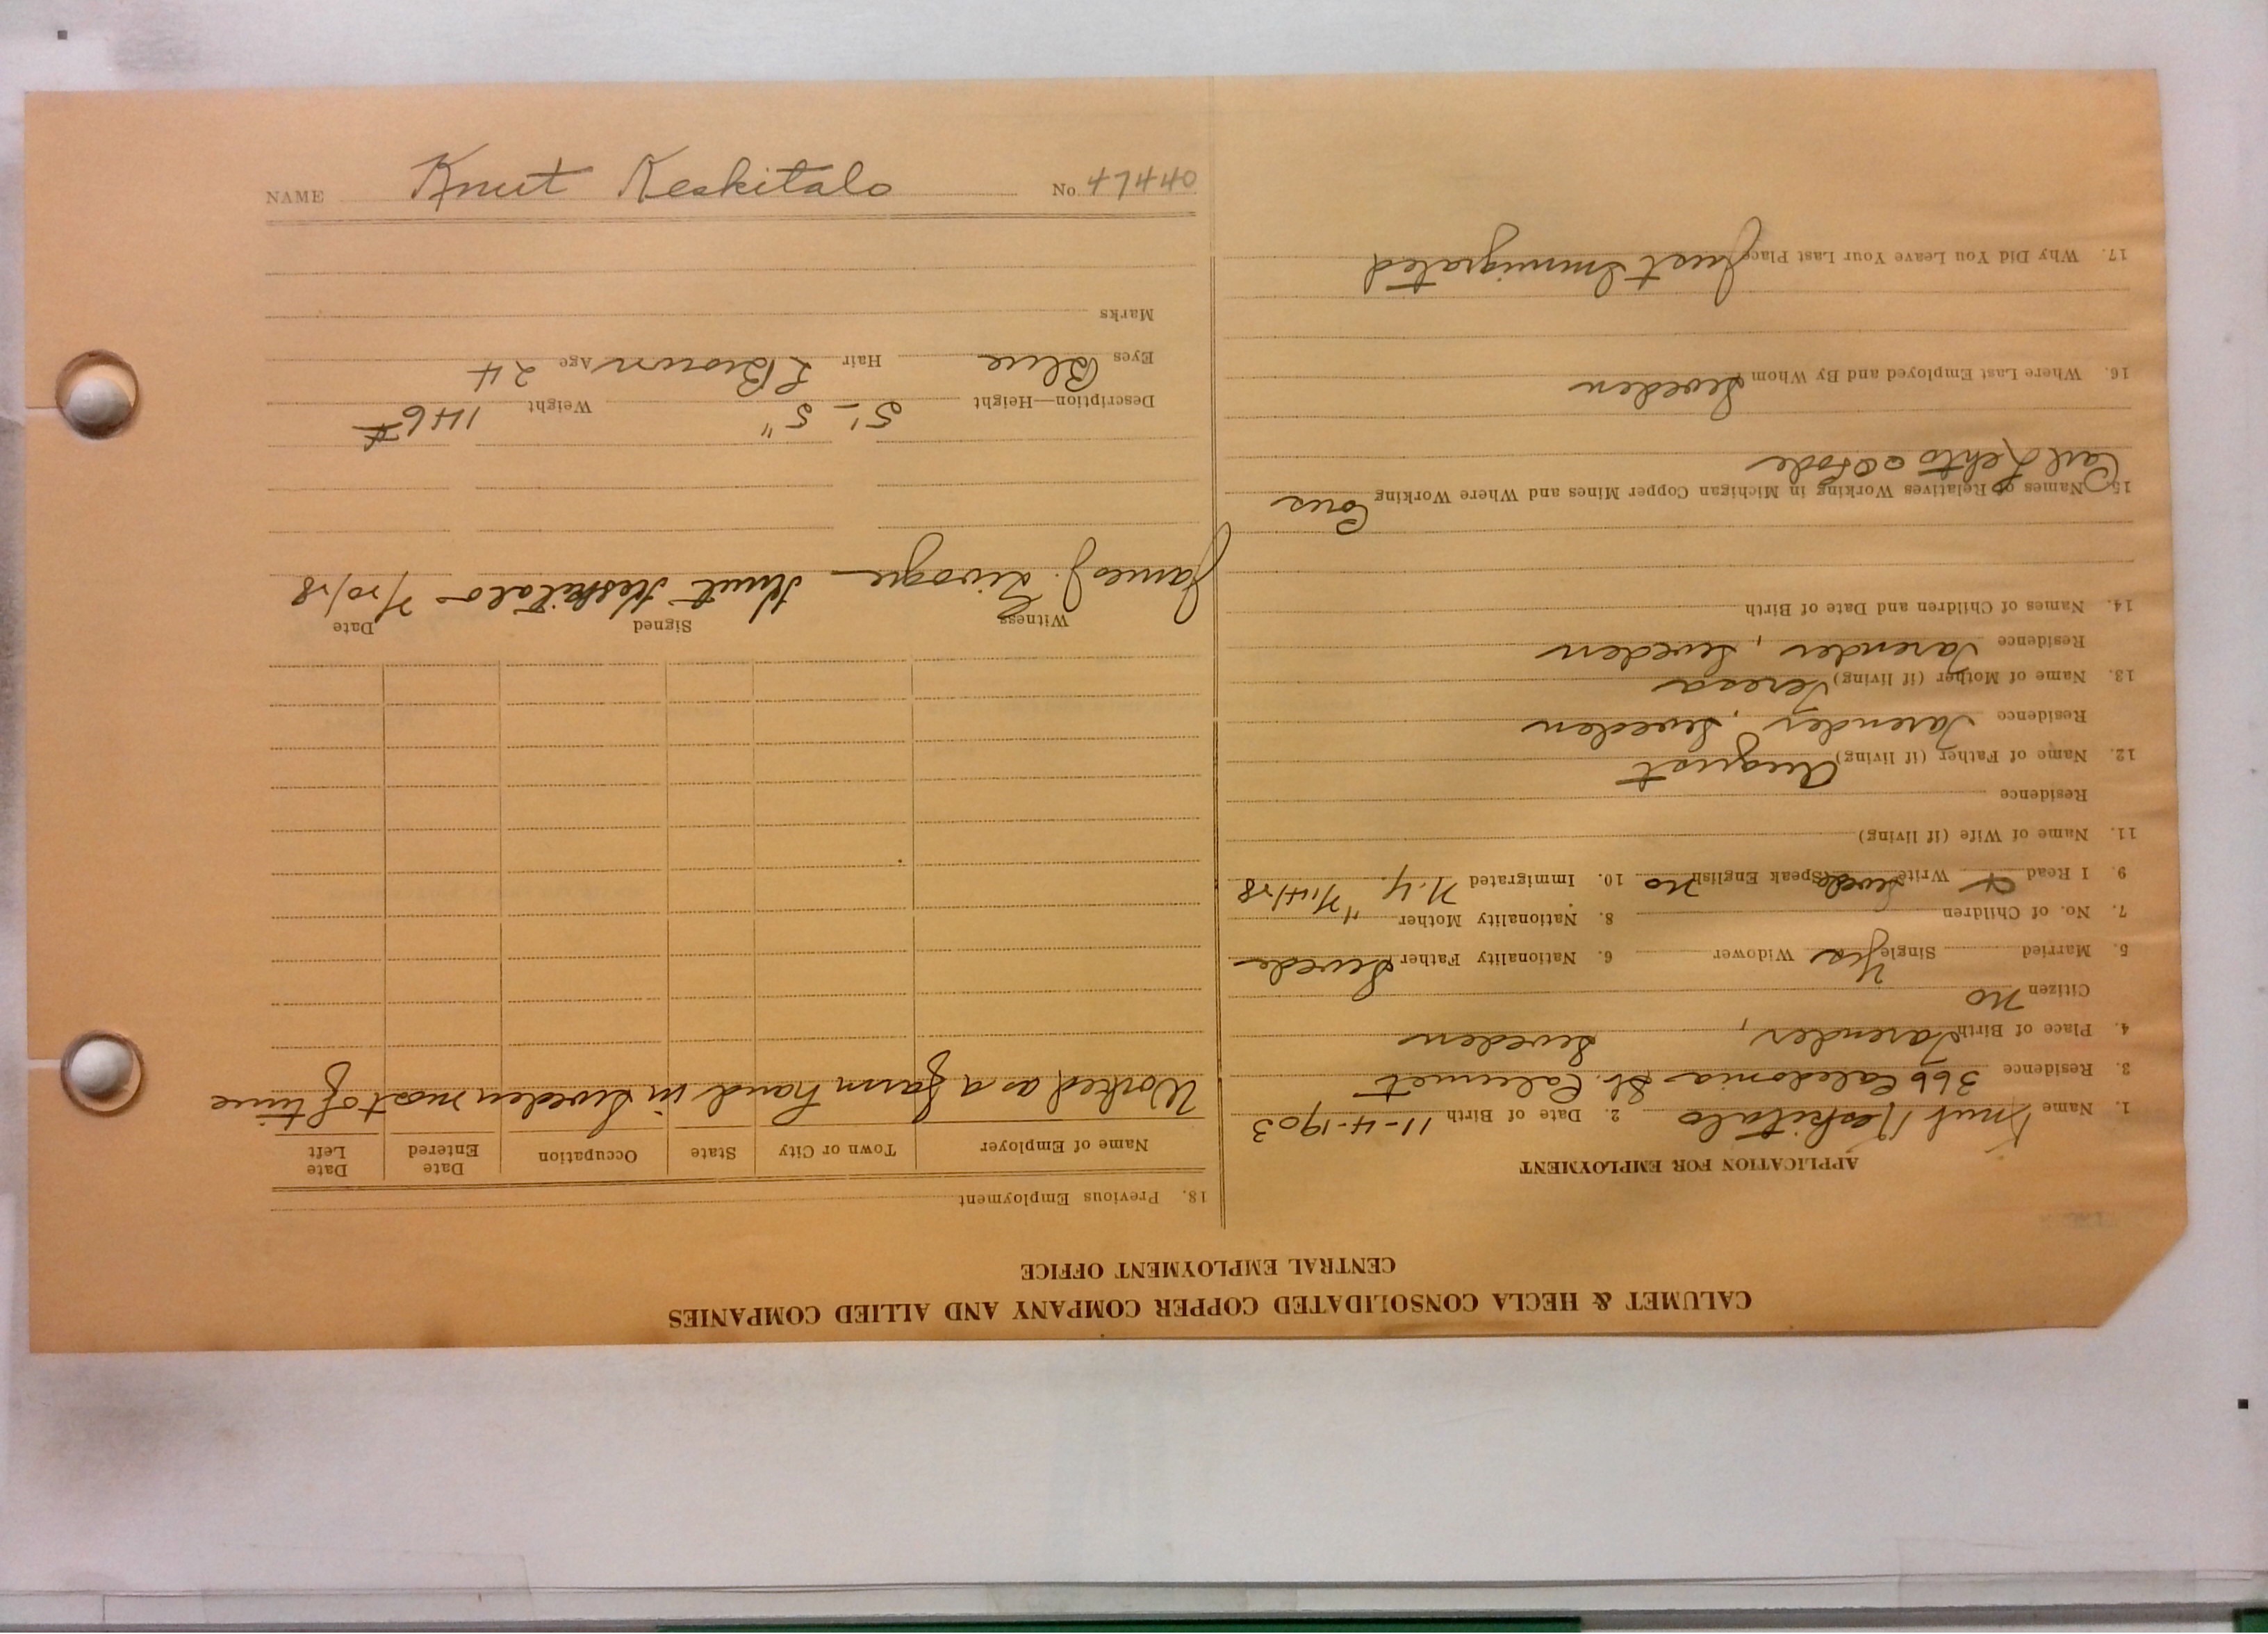 CALUMET & HECLA CONSOLIDATED COPPER COMPANY AND ALLIED COMPANIES
CENTRAL EMPLOYMENT OFFICE
APPLICATION FOR EMPLOYMENT
1. Name Knut Keskitalo 2. Date of Birth 11-4-1903
3. Residence 366 Caledonia St. Calumet
4. Place of Birth Tarender, Sweden
Citizen no
5. Married Single Yes Widower 6. Nationality Father Swede
7. No. of Children 8. Nationality Mother "
9. I Read & Write Swede Speak English no 10. Immigrated N.Y. 7/14/28
11. Name of Wife (if living)
Residence
12. Name of Father (if living) August
Residence Tarender, Sweden
13. Name of Mother (if living) Teresa
Residence Tarender, Sweden
14. Names of Children and Date of Birth
15. Names of Relatives Working in Michigan Copper Mines and Where Working Cous
Carl Lehto
16. Where Last Employed and By Whom Sweden
17. Why Did You Leave Your Last Place Just Immigrated
18. Previous Employment
Name of Employer Town or City State Occupation Date Entered Date Left
Worked as a farm hand in Sweden most of time
Witness Signed Date
James J. Knut Keskitalo 7/20/28
Description—Height 5'-5" Weight 146#
Eyes Blue Hair L Brown Age 24
Marks
NAME Knut Keskitalo No. 47440